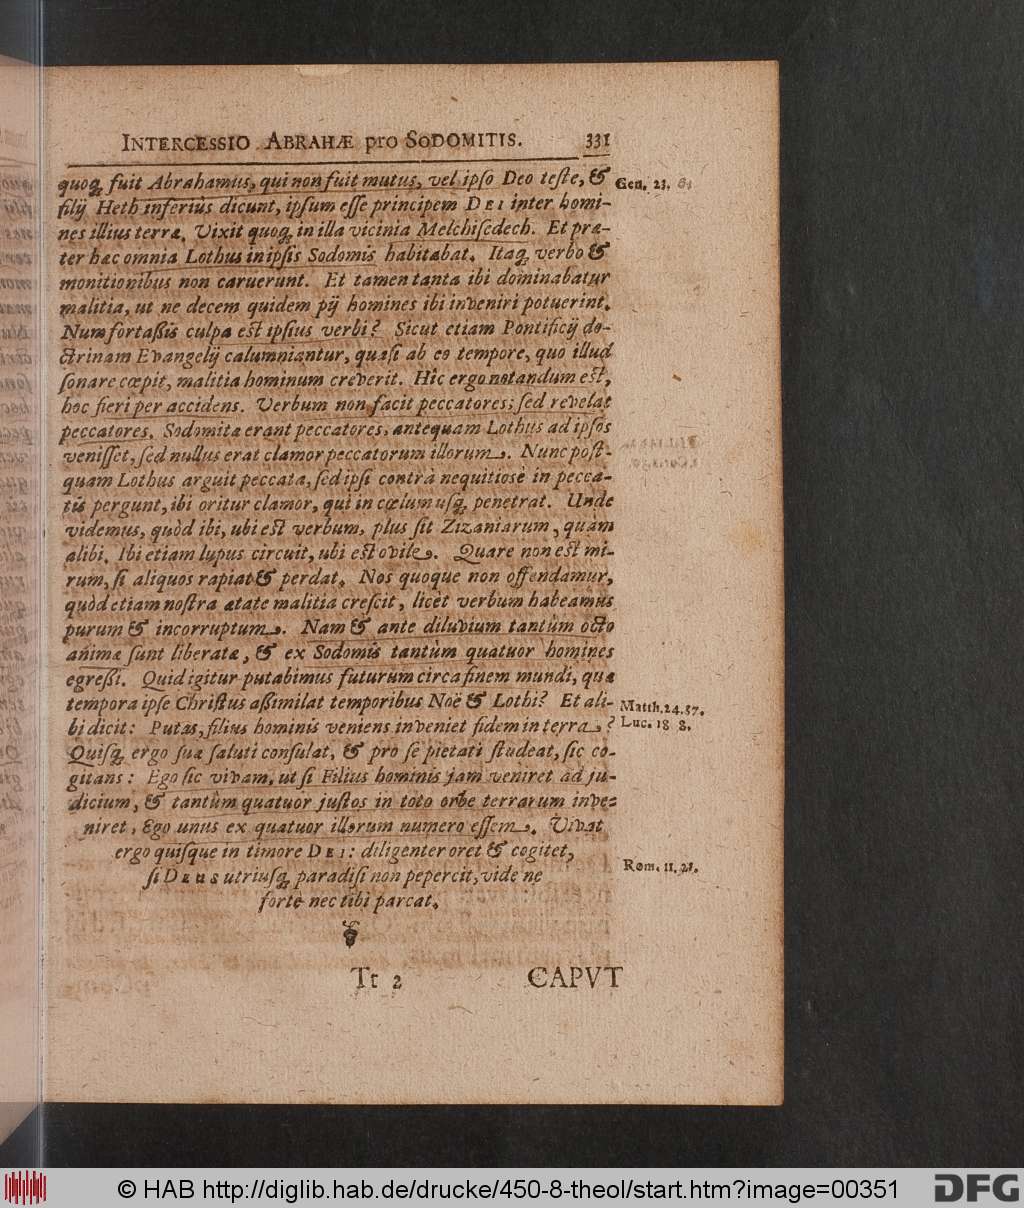 INTERCESSIO ABRAHÆ pro SODOMITIS. 331
quoq; fuit Abrahamus, qui non fuit mutus, vel ipso Deo teste, &
filij Heth inferiùs dicunt, ipsum esse principem DEI inter homi-
nes illius terræ. Vixit quoq; in illa vicinia Melchisedech. Et præ-
ter hæc omnia Lothus in ipsis Sodomis habitabat. Itaq; verbo &
monitionibus non caruerunt. Et tamen tanta ibi dominabatur
malitia, ut ne decem quidem pij homines ibi inveniri potuerint.
Num fortaßis culpa est ipsius verbi? Sicut etiam Pontificij do-
ctrinam Evangelij calumniantur, quasi ab eo tempore, quo illud
sonare cœpit, malitia hominum creverit. Hic ergo notandum est,
hoc fieri per accidens. Verbum non facit peccatores; sed revelat
peccatores. Sodomitæ erant peccatores, antequam Lothus ad ipsos
venisset, sed nullus erat clamor peccatorum illorum. Nunc post-
quam Lothus arguit peccata, sed ipsi contrà nequitiosè in pecca-
tis pergunt, ibi oritur clamor, qui in cœlum usq; penetrat. Unde
videmus, quòd ibi, ubi est verbum, plus sit Zizaniarum, quàm
alibi. Ibi etiam lupus circuit, ubi est ovile. Quare non est mi-
rum, si aliquos rapiat & perdat. Nos quoque non offendamur,
quòd etiam nostra ætate malitia crescit, licèt verbum habeamus
purum & incorruptum. Nam & ante diluvium tantùm octo
animæ sunt liberatæ, & ex Sodomis tantùm quatuor homines
egreßi. Quid igitur putabimus futurum circa finem mundi, quæ
tempora ipse Christus aßimilat temporibus Noë & Lothi? Et ali-
bi dicit: Putas, filius hominis veniens inveniet fidem in terra?
Quisq; ergo suæ saluti consulat, & pro se pietati studeat, sic co-
gitans: Ego sic vivam, ut si Filius hominis jam veniret ad ju-
dicium, & tantùm quatuor justos in toto orbe terrarum inve-
niret, Ego unus ex quatuor illorum numero essem. Vivat
ergo quisque in timore DEI: diligenter oret & cogitet,
si DEUS utriusq; paradisi non pepercit, vide ne
fortè nec tibi parcat.
Tt 2 CAPVT
Gen. 23. 6.
Matth. 24. 37.
Luc. 18 8.
Rom. 11. 21.
© HAB http://diglib.hab.de/drucke/450-8-theol/start.htm?image=00351
DFG